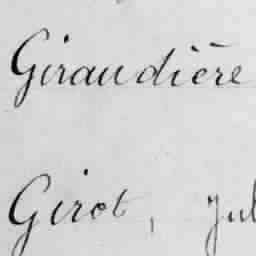 Giraudière
Girot, Jul